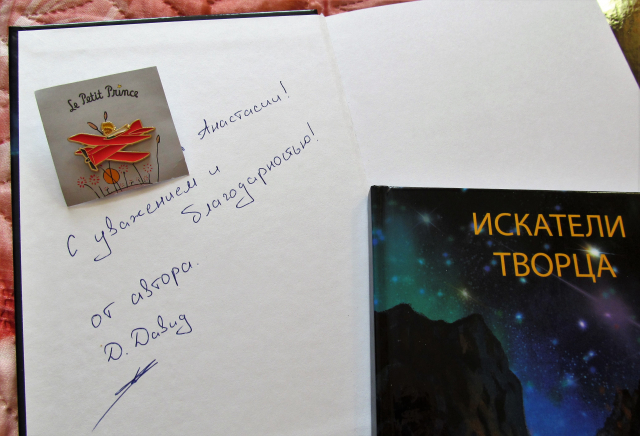 Le Petit Prince
Анастасии!
С уважением и
благодарностью!
от автора.
Д. Давид
ИСКАТЕЛИ
ТВОРЦА